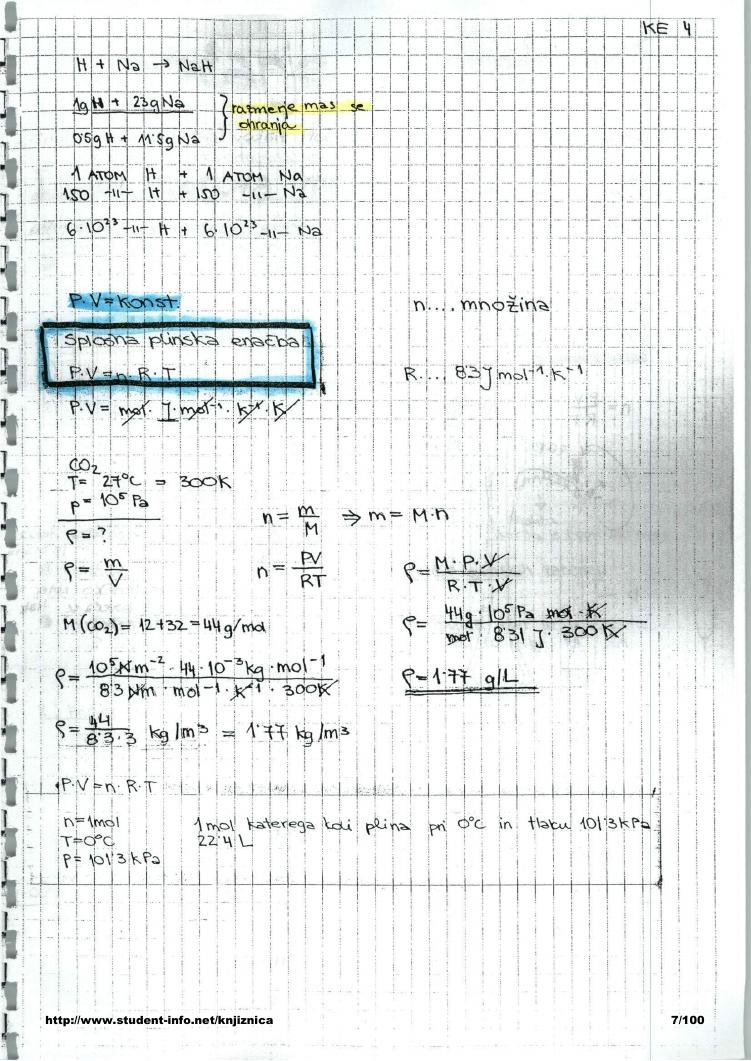 KE 4
H + Na → NaH
1g H + 23g Na } razmerje mas se
ohranja
0'5g H + 11'5g Na
1 ATOM H + 1 ATOM Na
150 -11- H + 150 -11- Na
6·10²³ -11- H + 6·10²³ -11- Na
P·V = konst.
n.... množina
Splošna plinska enačba
P·V = n·R·T
R.... 8'3 J mol⁻¹·K⁻¹
P·V = mol · J · mol⁻¹ · K⁻¹ · K
CO₂
T= 27°C = 300K
p = 10⁵ Pa
ρ = ?
n = m/M ⇒ m = M·n
ρ = m/V
n = PV/RT
ρ = M·P·V / R·T·V
M(CO₂) = 12+32 = 44 g/mol
ρ = 44g · 10⁵ Pa mol · K / mol · 8'31 J · 300 K
ρ = 10⁵ N m⁻² · 44 · 10⁻³ kg · mol⁻¹ / 8'3 Nm · mol⁻¹ · K⁻¹ · 300K
ρ = 1'77 g/L
ρ = 44 / 8'3·3 kg/m³ = 1'77 kg/m³
P·V = n·R·T
n = 1mol
1mol katerega koli plina pri 0°C in tlaku 101'3 kPa
T = 0°C
22'4 L
P = 101'3 kPa
http://www.student-info.net/knjiznica
7/100